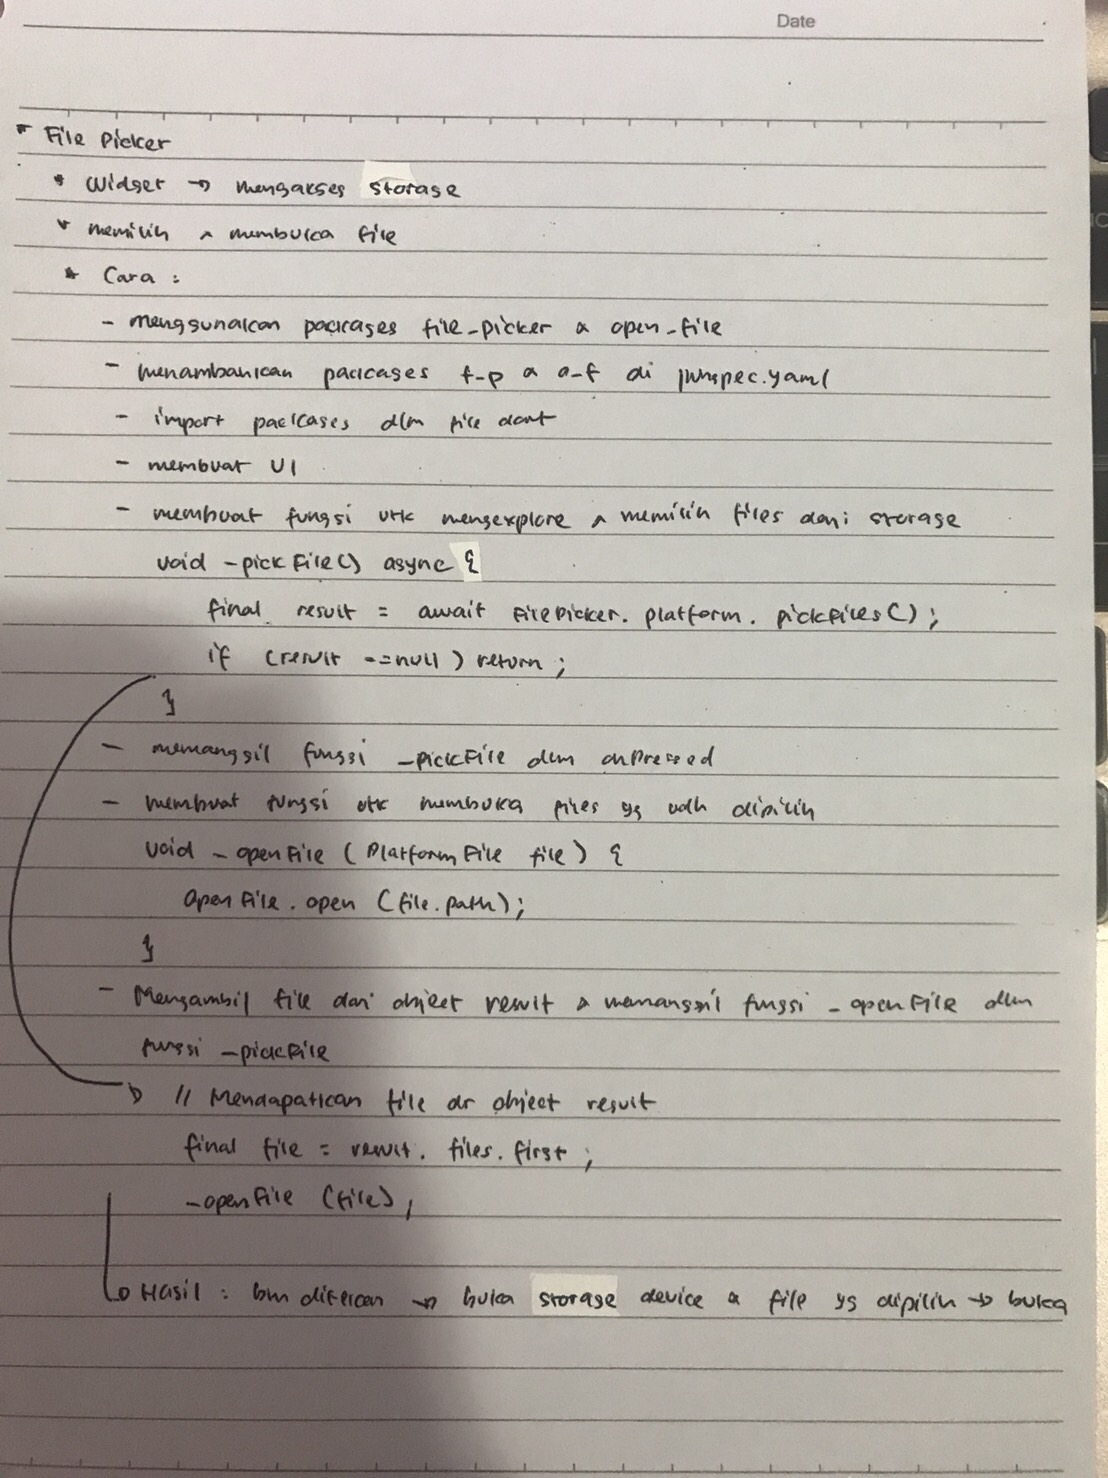 Date
* File Picker
* Widget → mengakses storage
* memilih & membuka file
* Cara :
- menggunakan packages file_picker & open_file
- menambahkan packages f-p & o-f di pubspec.yaml
- import packages dlm file dart
- membuat UI
- membuat fungsi utk mengexplore & memilih files dari storage
void _pickFile() async {
final result = await FilePicker. platform. pickFiles();
if (result ==null) return ;
}
- memanggil fungsi _pickFile dlm onPressed
- membuat fungsi utk membuka files yg udh dipilih
void _openFile (PlatformFile file) {
OpenFile. open (file.path);
}
- Mengambil file dari object result & memanggil fungsi _openFile dlm
fungsi _pickFile
→ // Mendapatkan file dr object result
final file = result. files. first ;
_openFile (file);
→ Hasil : btn ditekan → buka storage device & file yg dipilih → buka